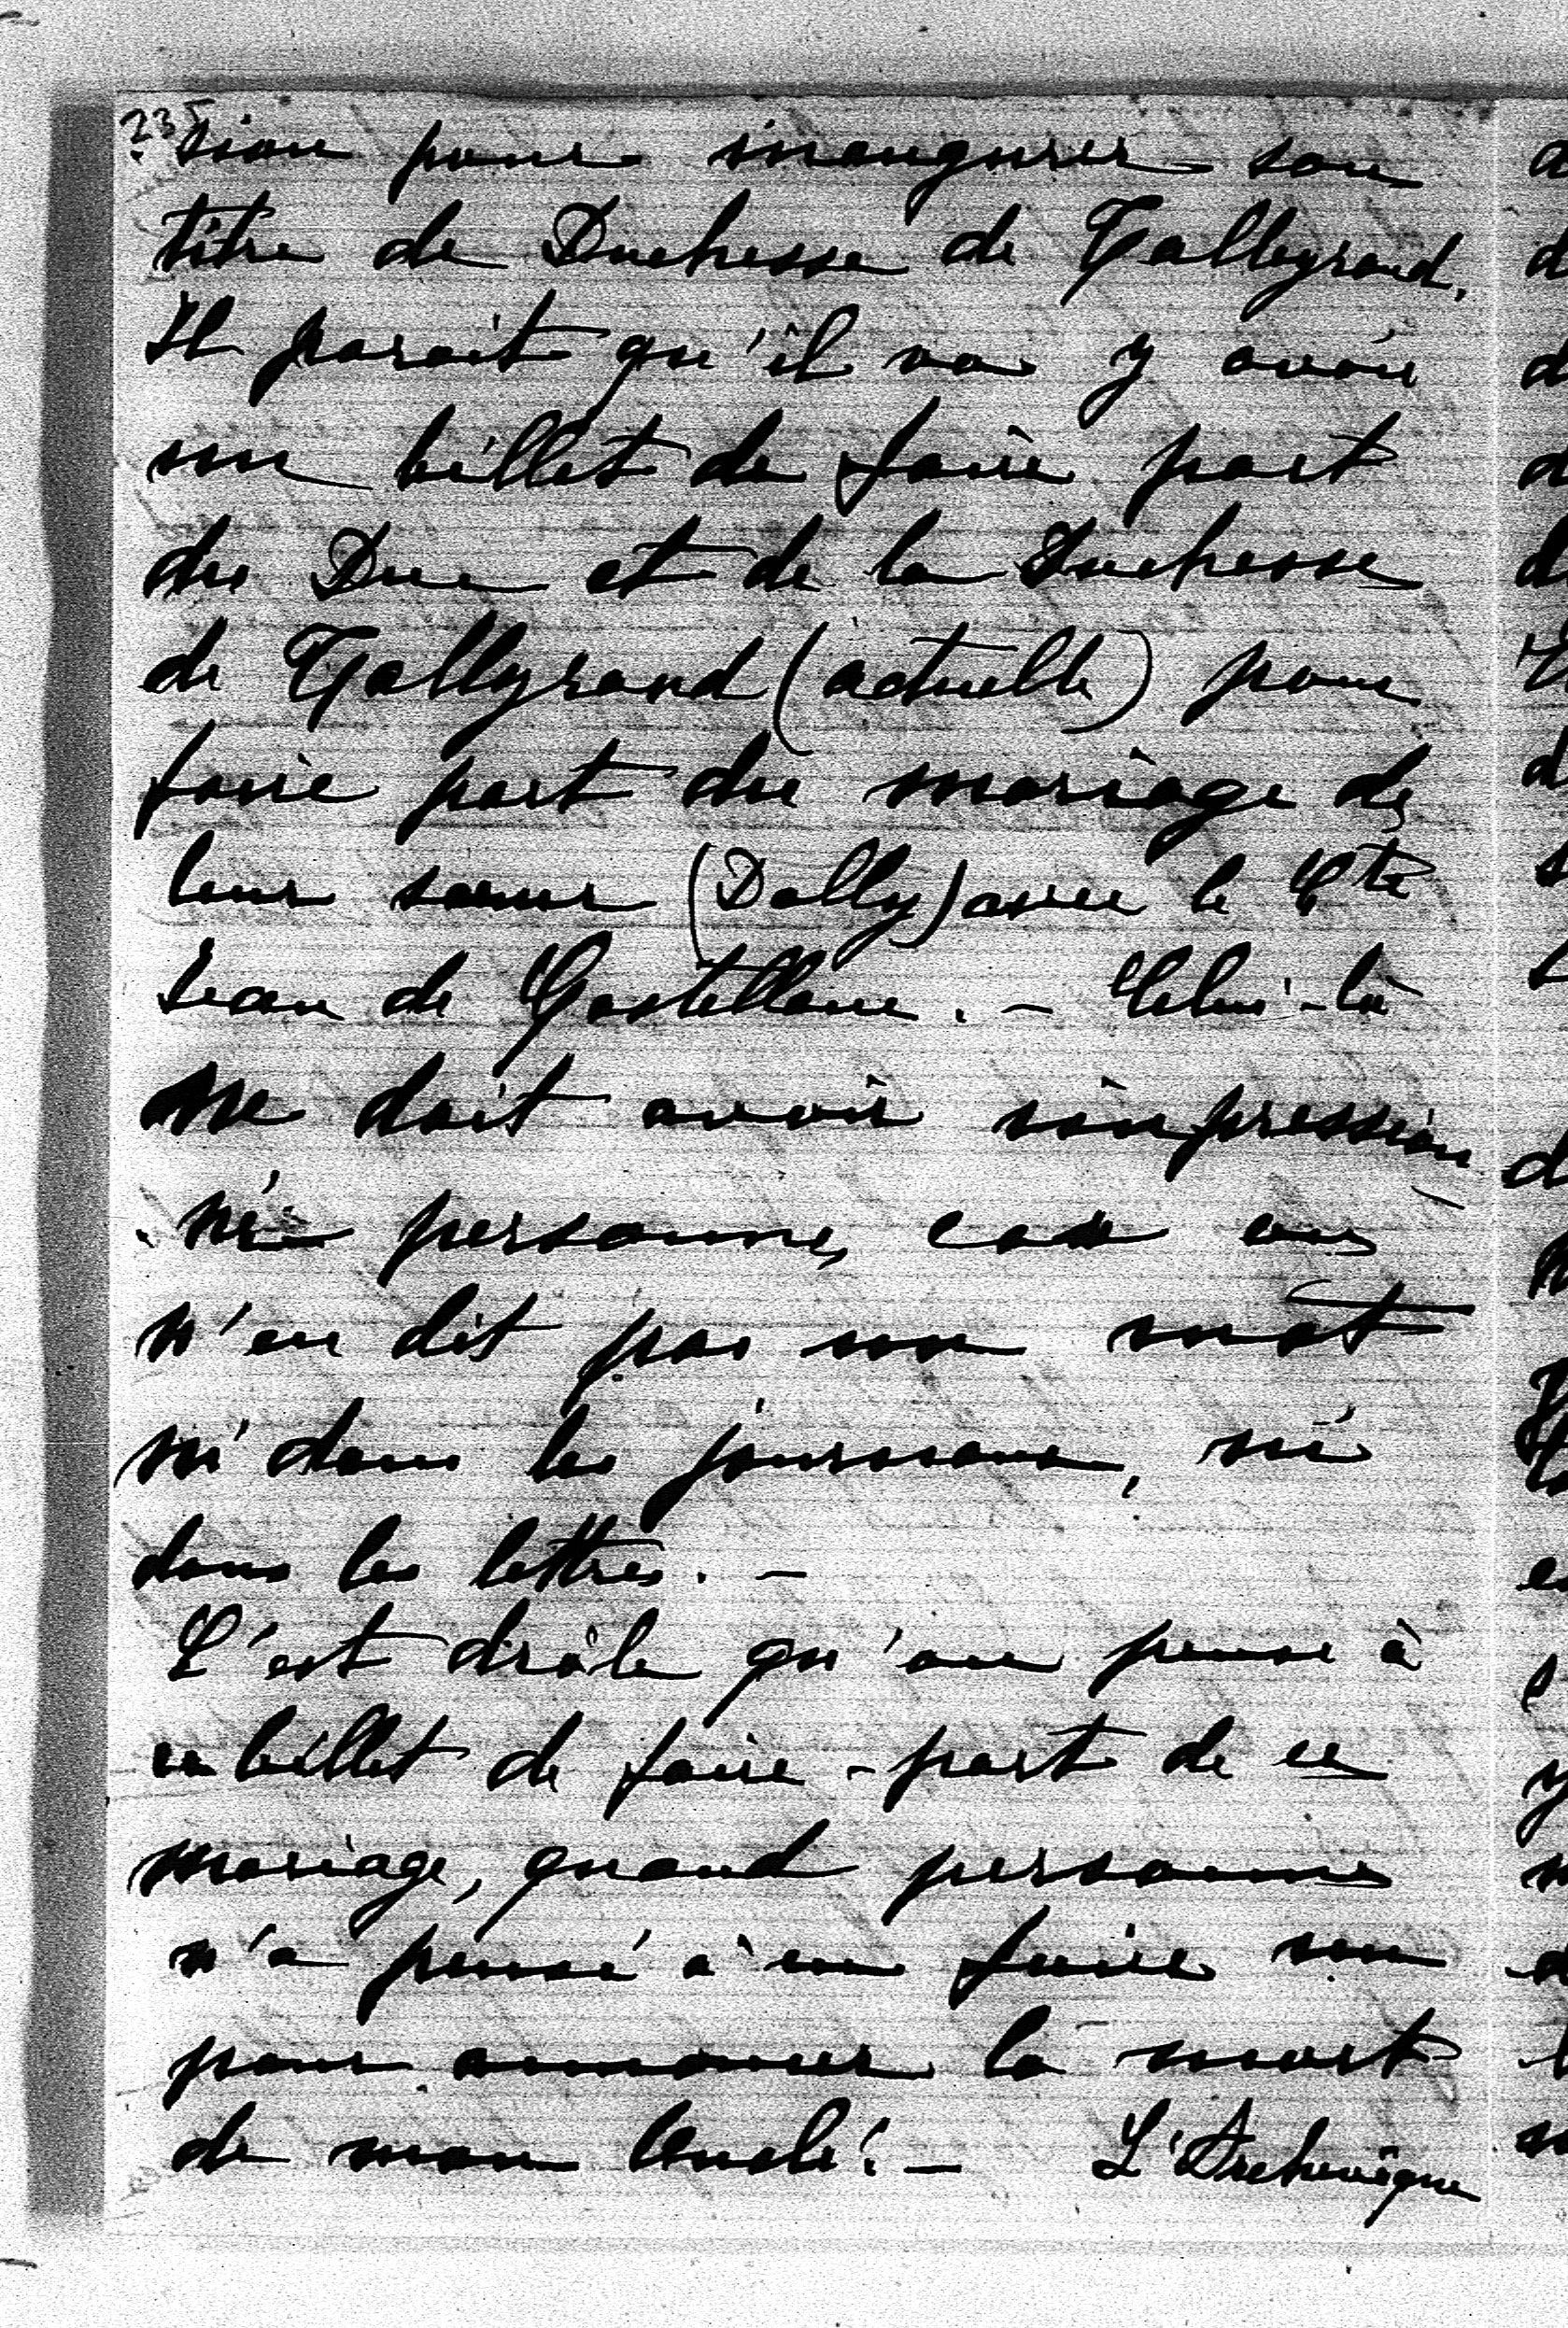 235
sion pour inaugurer son
titre de Duchesse de Talleyrand.
Il parait qu'il va y avoir
un billet de faire part
du Duc et de la Duchesse
de Talleyrand (actuelle) pour
faire part du mariage de
leur sœur (Dolly) avec le Cte
Jean de Castellane. - Celui-là
ne doit avoir impression
né personne, car on
n'en dit pas un mot
ni dans les journaux, ni
dans les lettres. -
C'est drôle qu'on pense à
un billet de faire-part de ce
mariage, quand personne
n'a pensé à en faire un
pour annoncer la mort
de mon Oncle! - L'Archevêque